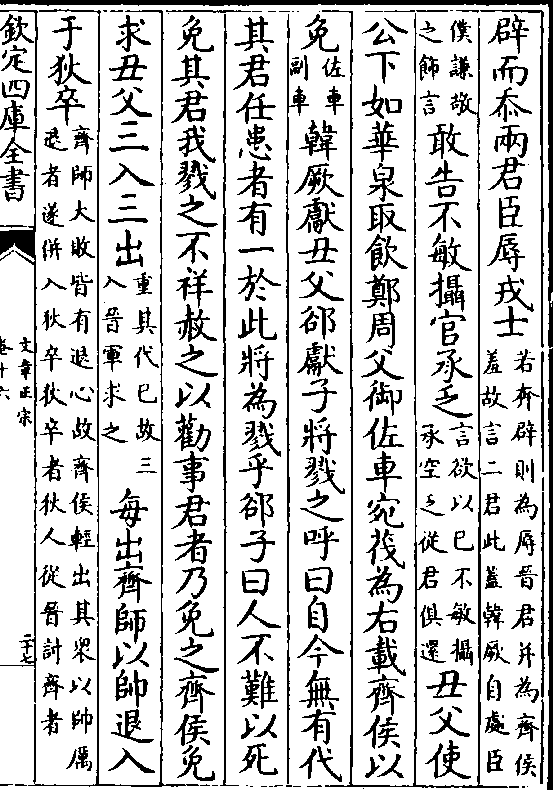 辟而忝兩君臣辱戎士若奔辟則為辱晉君并為齊侯羞故言二君此蓋韓厥自處臣
僕謙敬之飾言敢告不敏攝官承乏言欲以已不敏攝承空乏從君俱還丑父使
公下如華泉取飲鄭周父御佐車宛茷為右載齊侯以
免佐車副車韓厥獻丑父郤獻子將戮之呼曰自今無有代
其君任患者有一於此將為戮乎郤子曰人不難以死
免其君我戮之不祥赦之以勸事君者乃免之齊侯免
求丑父三入三出重其代已故三入晉軍求之每出齊師以帥退入
于狄卒齊師大敗皆有退心故齊侯輕出其衆以帥厲退者遂併入狄卒狄卒者狄人從晉討齊者
欽定四庫全書
文章正宗
卷十六
二十七